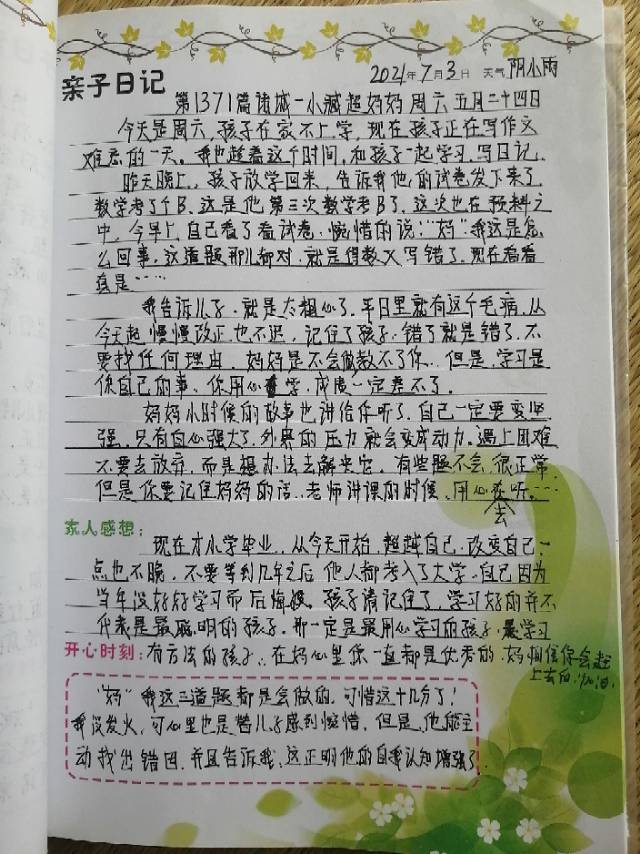 亲子日记
2021年7月3日 天气阴小雨
第1371篇诸城一小臧超妈妈 周六 五月二十四日
今天是周六，孩子在家不上学，现在孩子正在写作文
难忘的一天。我也趁着这个时间，和孩子一起学习，写日记。
昨天晚上，孩子放学回来，告诉我他的试卷发下来了，
数学考了个B，这是他第三次数学考B了，这次也在预料之
中，今早上，自己看了看试卷，惋惜的说：“妈”我这是怎
么回事，这道题那儿都对，就是得数又写错了，现在看看
真是……
我告诉儿子，就是太粗心了，平日里就有这个毛病，从
今天起慢慢改正也不迟，记住了孩子，错了就是错了，不
要找任何理由，妈妈是不会做教不了你，但是，学习是
你自己的事，你用心学，成质一定差不了。
妈妈小时候的故事也讲给你听了，自己一定要变坚
强，只有自心强大了，外界的压力就会变成动力。遇上困难
不要去放弃，而是想办法去解决它，有些题不会很正常，
但是你要记住妈妈的话，老师讲课的时候，用心去听。……
家人感想：
现在才小学毕业，从今天开始，超越自己，改变自己一
点也不晚，不要等到几年之后他人都考入了大学，自己因为
当年没好好学习而后悔。孩子请记住了，学习好的并不
代表是最聪明的孩子，那一定是最用心学习的孩子，是学习
开心时刻：有方法的孩子，在妈心里你一直都是优秀的，妈相信你会赶
上去的，加油，
“妈”我这三道题都是会做的，可惜这十几分了！
我没发火，可心里也是替儿子感到惋惜，但是，他能主
动找出错因，并且告诉我，这正明他的自我认知增强了